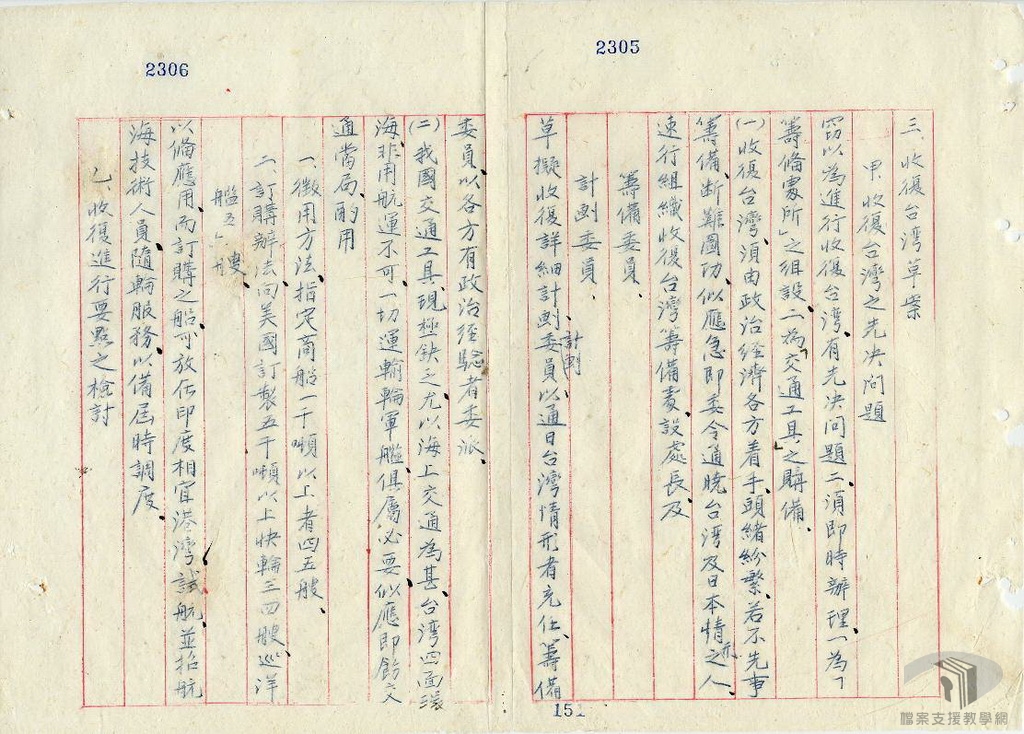 2305
三、收復台湾草案
甲、收復台湾之先决问題
窃以為進行收復台湾、有先决问題二、須即時辦理、一為「
籌備處所」之組設、二為「交通工具」之購備、
(一)收復台湾、須由政治経濟各方着手、頭緒紛繁、若不先事
籌備、断難圖功、似應急即委令通曉台湾及日本情形之人、
速行組織收復台灣籌備處、設處長及
籌備委員、
計劃委員、
草擬收復詳細計劃、計劃委員以通日台灣情形者充任、籌備
151
2306
委員、以各方有政治経驗者委派、
(二)我國交通工具、現極缺乏、尤以海上交通為甚、台湾四面環
海、非用航運不可、一切運輸輪軍艦、俱屬必要、似應即飭交
通當局、酌用
一、徵用方法、指定商船一千噸以上者四五艘、
二、訂購辦法、向美國訂製五千噸以上快輪三四艘、巡洋
艦五」艘、
以備應用、而訂購之船、可放在印度相宜港湾、試航、並招航
海技術人員、隨輪服務、以備屆時調度、
乙、收復進行要點之檢討
檔案支援教學網